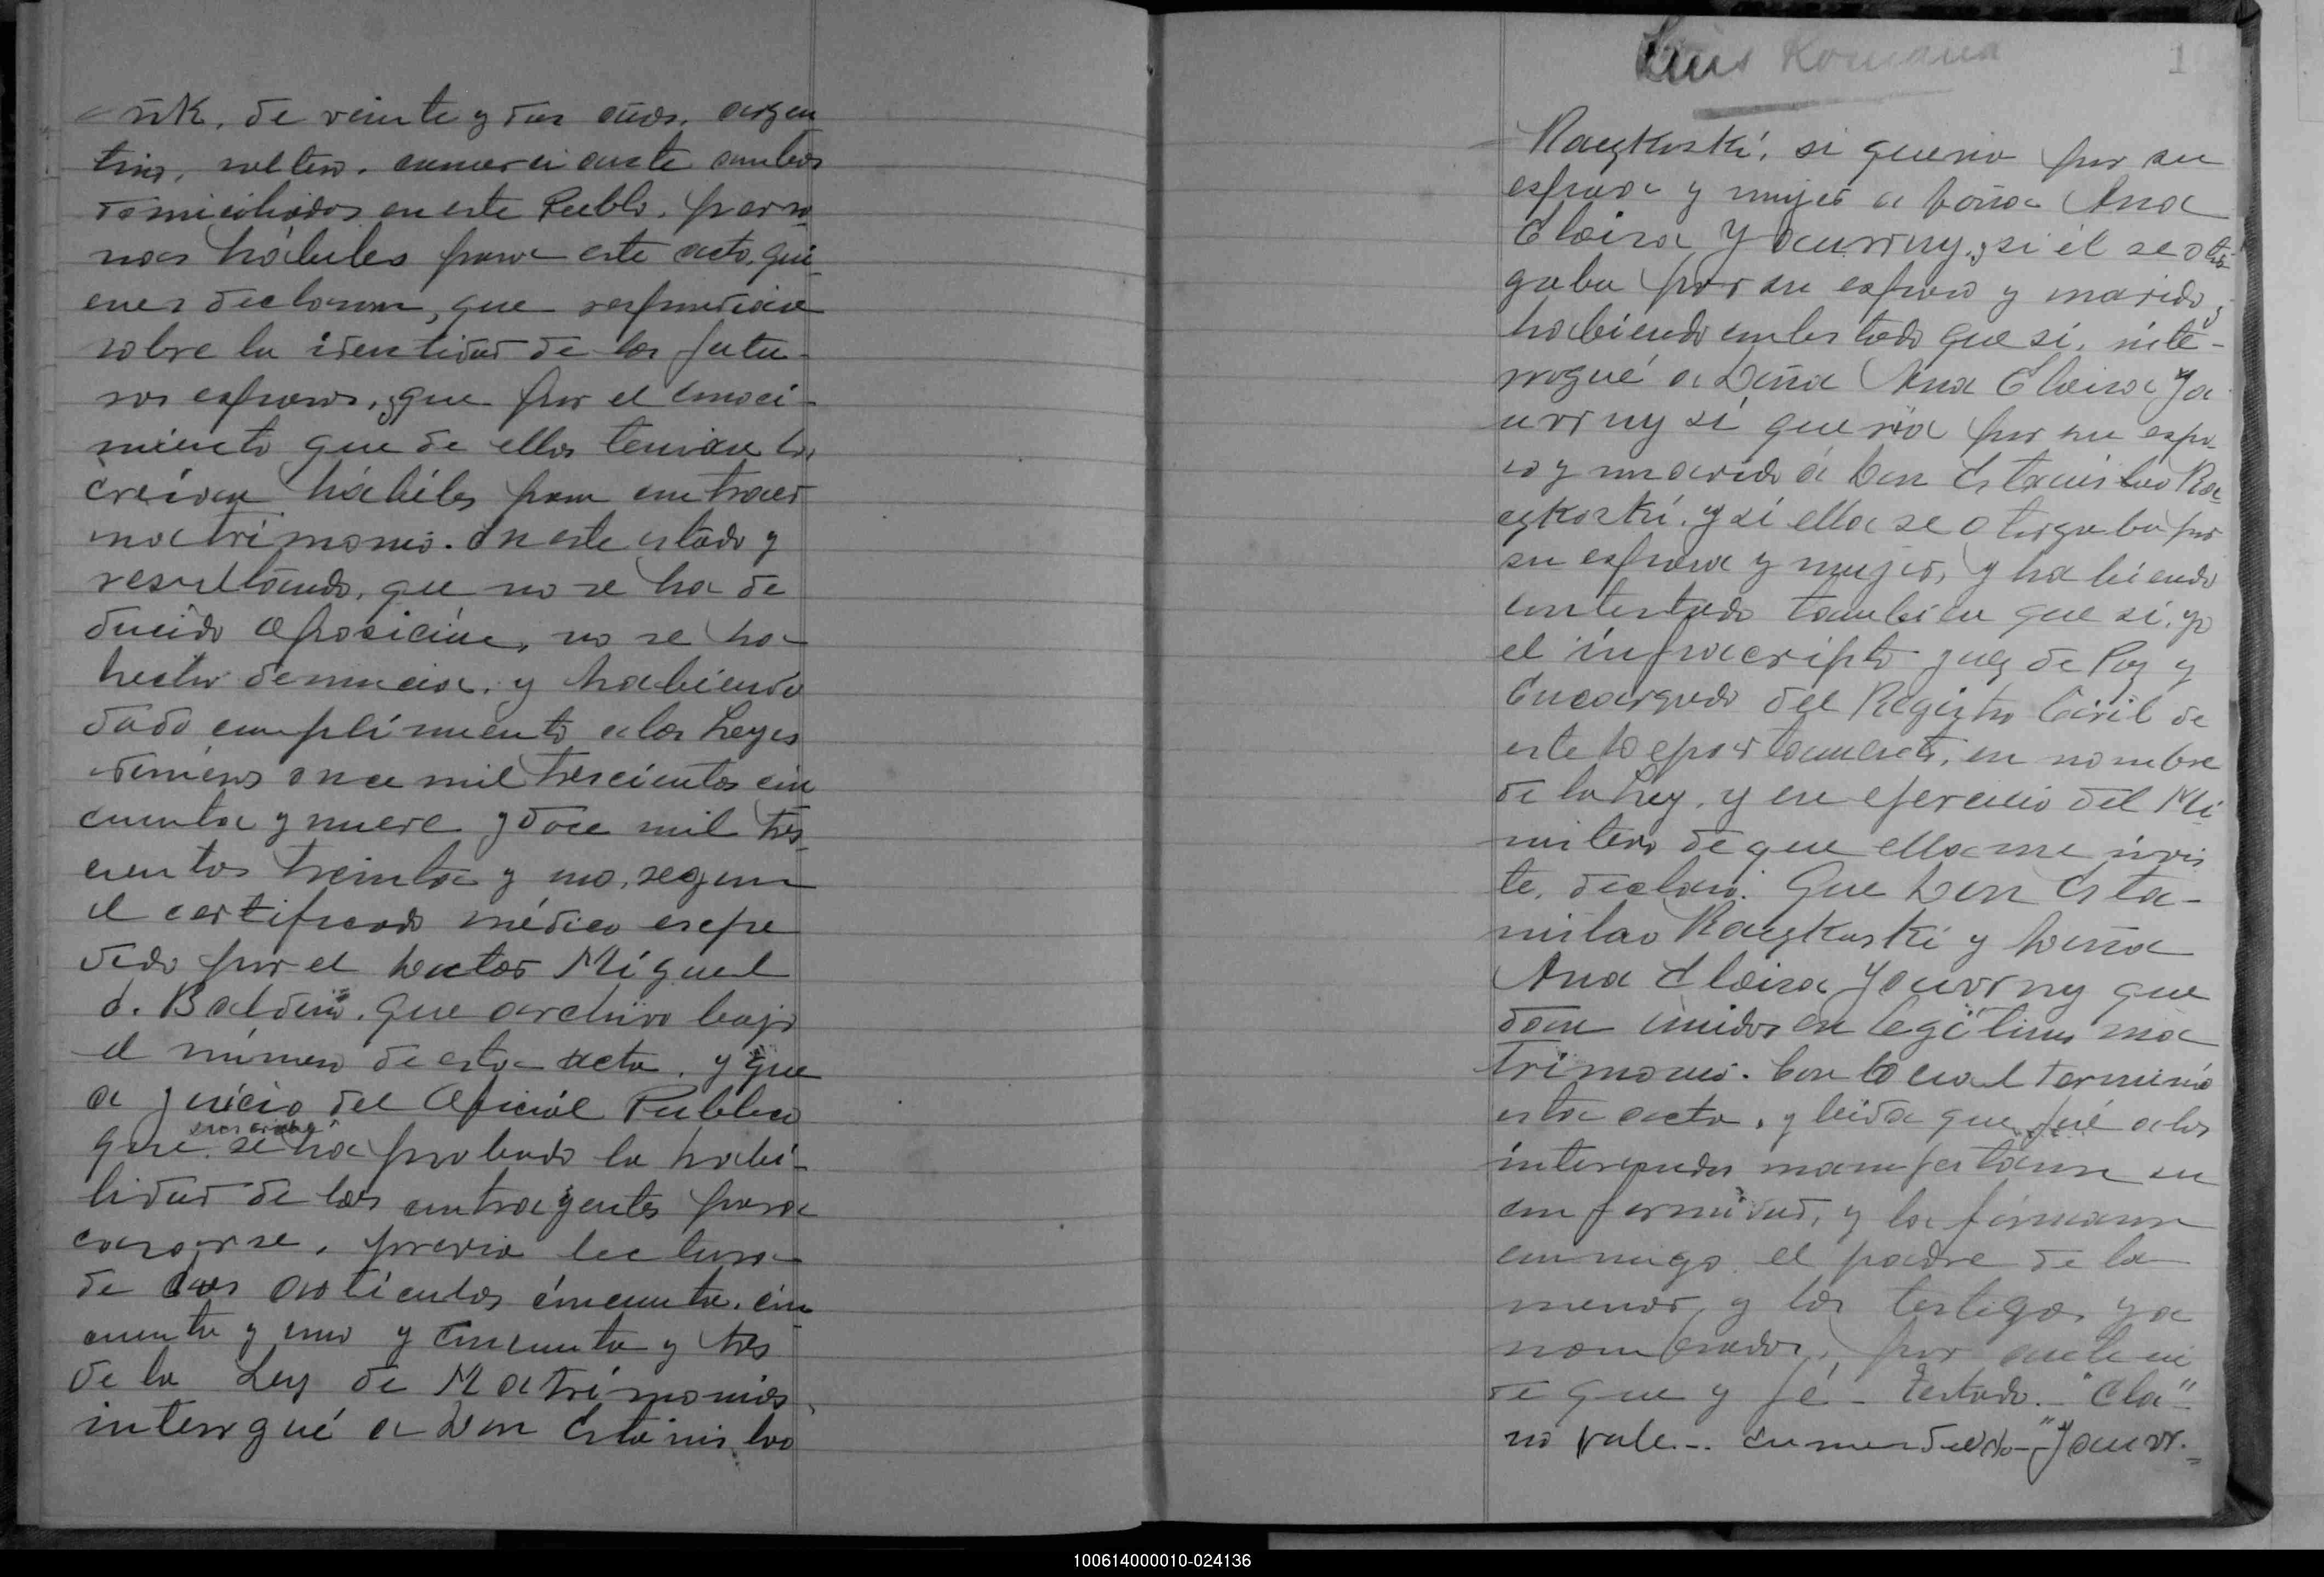 ñk, de veinte y dos años, argen
tino, soltero, comerciante ambos
domiciliados en este Pueblo, perso-
nas hábiles para este acto, qui-
enes declararon, que respondian
sobre la identidad de los futu-
ros esposos, y que por el conoci-
miento que de ellos tenian los
creían hábiles para contraer
matrimonio. En este estado y
resultando, que no se ha de
ducido oposición, no se ha
hecho denuncia, y habiendo
dado cumplimiento a las Leyes
número once mil trescientos cin
cuenta y nueve y doce mil tres-
cientos treinta y uno, segun
el certificado médico expe
dido por el Doctor Miguel
A. Baldini, que archivo bajo
el número de esta acta, y que
a juicio del Oficial Publico
que se ha probado la habi-
lidad de los contrayentes para
casarse, previa lectura
de los articulos cincuenta, cin-
cuenta y uno y cincuenta y tres
de la Ley de Matrimonios,
interrogué a Don Estanislao
Luis Romana
1
Raczkoski, si queria por su
esposa y mujer a Doña Ana
Eloisa Yauorny, y si él se otor-
gaba por su esposo y marido, y
habiendo contestado que sí, inte-
rrogué a Doña Ana Eloisa Ya
uorny si quería por su espo-
so y marido á Don Estanislao Ra-
czkoski, y si ella se otorgaba por
su esposa y mujer, y habiendo
contestado tambien que sí, yo
el infracripto Juez de Paz y
Encargado del Registro Civil de
este Departamento, en nombre
de la Ley, y en ejercicio del Mi-
nisterio de que ella me invis
te, declaro: Que Don Esta-
nislao Raczkoski y Doña
Ana Eloisa Yauorny que
dan unidos en legítimo ma
trimonio. Con lo cual terminó
esta acta, y leida que fué a los
interesados manifestaron su
conformidad, y la firmaron
conmigo, el padre de la
menor, y los testigos ya
nombrados, por ante mi
de que y fé - Testado - "Ela"
no vale - Enmendado - "Yauor-
100614000010-024136